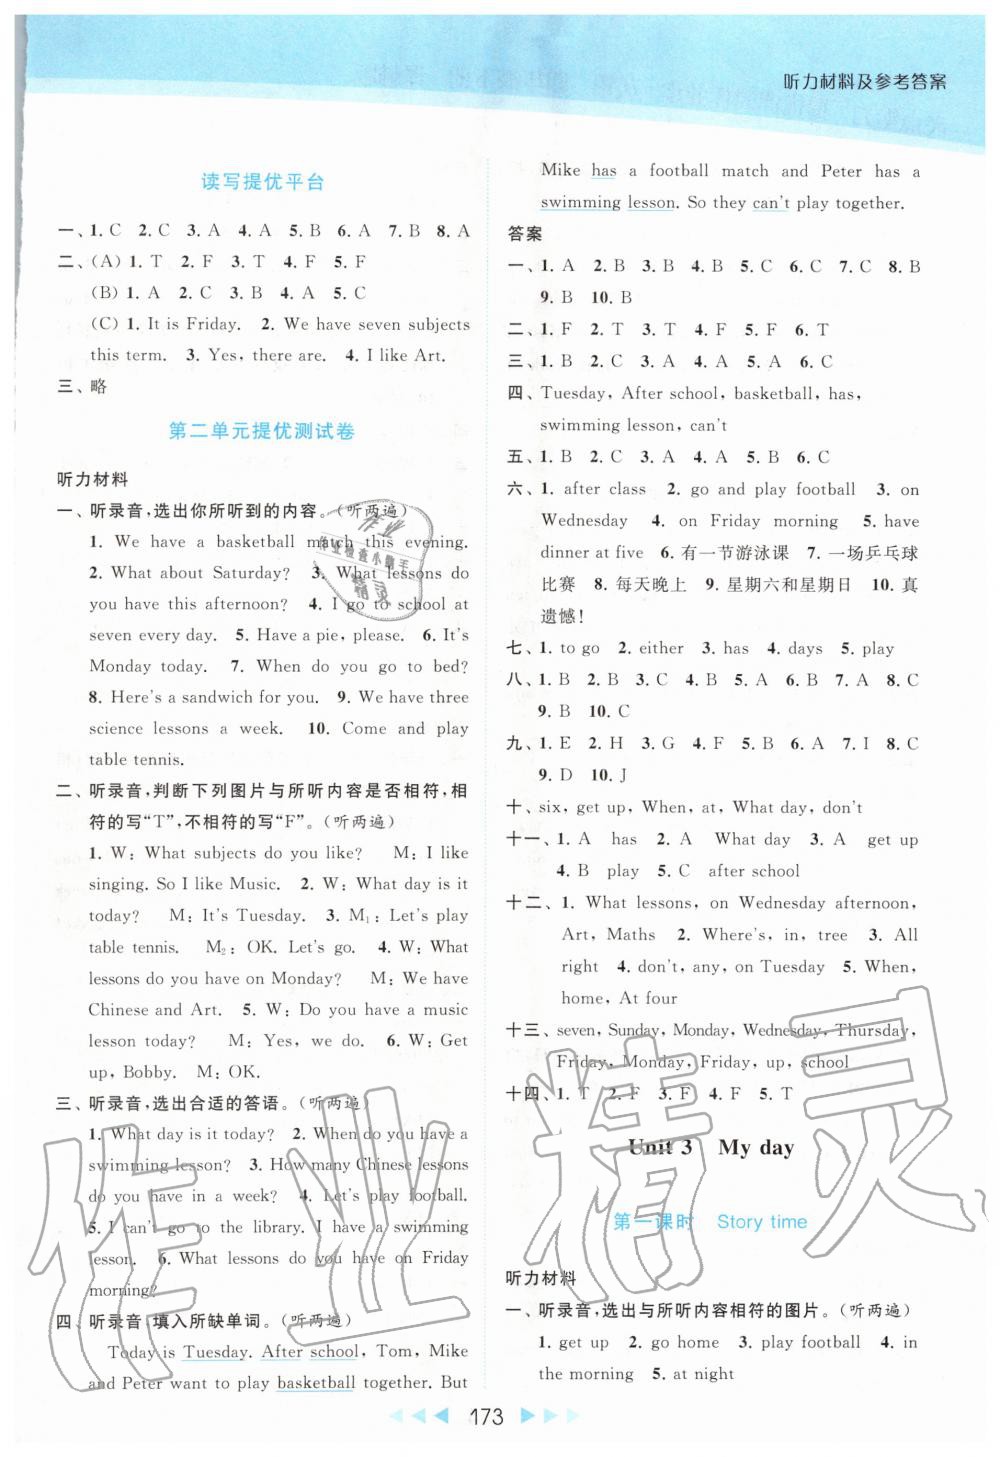 听力材料及参考答案
读写提优平台
一、1. C 2. C 3. A 4. A 5. B 6. A 7. B 8. A
二、(A) 1. T 2. F 3. T 4. F 5. F
(B) 1. A 2. C 3. B 4. A 5. C
(C) 1. It is Friday. 2. We have seven subjects
this term. 3. Yes, there are. 4. I like Art.
三、略
第二单元提优测试卷
听力材料
一、听录音,选出你所听到的内容。(听两遍)
1. We have a basketball match this evening.
2. What about Saturday? 3. What lessons do
you have this afternoon? 4. I go to school at
seven every day. 5. Have a pie, please. 6. It's
Monday today. 7. When do you go to bed?
8. Here's a sandwich for you. 9. We have three
science lessons a week. 10. Come and play
table tennis.
二、听录音,判断下列图片与所听内容是否相符,相
符的写“T”,不相符的写“F”。(听两遍)
1. W: What subjects do you like? M: I like
singing. So I like Music. 2. W: What day is it
today? M: It's Tuesday. 3. M₁: Let's play
table tennis. M₂: OK. Let's go. 4. W: What
lessons do you have on Monday? M: We have
Chinese and Art. 5. W: Do you have a music
lesson today? M: Yes, we do. 6. W: Get
up, Bobby. M: OK.
三、听录音,选出合适的答语。(听两遍)
1. What day is it today? 2. When do you have a
swimming lesson? 3. How many Chinese lessons
do you have in a week? 4. Let's play football.
5. I can't go to the library. I have a swimming
lesson. 6. What lessons do you have on Friday
morning?
四、听录音,填入所缺单词。(听两遍)
Today is Tuesday. After school, Tom, Mike
and Peter want to play basketball together. But
Mike has a football match and Peter has a
swimming lesson. So they can't play together.
答案
一、1. A 2. B 3. B 4. B 5. C 6. C 7. C 8. B
9. B 10. B
二、1. F 2. T 3. T 4. F 5. F 6. T
三、1. B 2. C 3. A 4. A 5. A 6. C
四、Tuesday, After school, basketball, has,
swimming lesson, can't
五、1. B 2. C 3. B 4. A 5. C
六、1. after class 2. go and play football 3. on
Wednesday 4. on Friday morning 5. have
dinner at five 6. 有一节游泳课 7. 一场乒乓球
比赛 8. 每天晚上 9. 星期六和星期日 10. 真
遗憾!
七、1. to go 2. either 3. has 4. days 5. play
八、1. B 2. B 3. C 4. B 5. A 6. B 7. A 8. C
9. B 10. C
九、1. E 2. H 3. G 4. F 5. B 6. A 7. I 8. C
9. D 10. J
十、six, get up, When, at, What day, don't
十一、1. A has 2. A What day 3. A get up
4. B play 5. C after school
十二、1. What lessons, on Wednesday afternoon,
Art, Maths 2. Where's, in, tree 3. All
right 4. don't, any, on Tuesday 5. When,
home, At four
十三、seven, Sunday, Monday, Wednesday, Thursday,
Friday, Monday, Friday, up, school
十四、1. T 2. F 3. F 4. F 5. T
Unit 3 My day
第一课时 Story time
听力材料
一、听录音,选出与所听内容相符的图片。(听两遍)
1. get up 2. go home 3. play football 4. in
the morning 5. at night
173
作业精灵